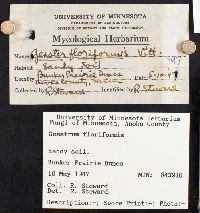 UNIVERSITY OF MINNESOTA
DEPARTMENT OF AGRICULTURE
DIVISION OF BOTANY AND PLANT PATHOLOGY
Mycological Herbarium
Name Geaster floriformis Vitt.
Habitat Sandy Soil
Bunker Prairie Dunes
Date 5-10-47
Collected R. Steward Identified R. Steward
University of Minnesota Herbarium
Fungi of Minnesota, Anoka County
Geastrum floriformis
Sandy soil.
Bunker Prairie Dunes
10 May 1947 MIN: 843916
Coll. R. Steward
Det. R. Steward
Description:-; Spore Print:-; Photo:-